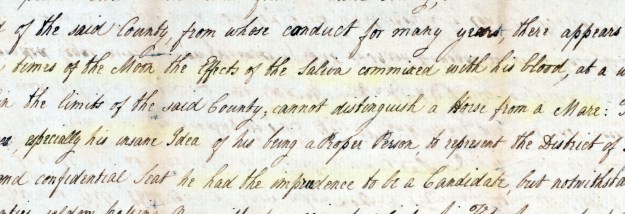 of the said County, from whose conduct for many years, there appears
times of the Moon the Effects of the Saliva commixed with his blood, at a
in the limits of the said County, cannot distinguish a Horse from a Mare:
especially his insane Idea of his being a Proper Person to represent the District of
and confidential Seat he had the impudence to be a Candidate, but notwithsta
seldom